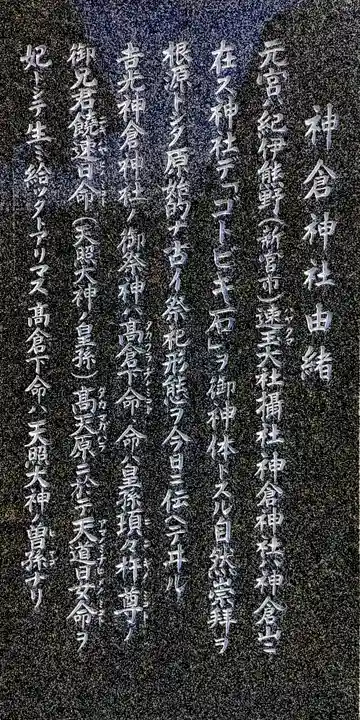 神倉神社由緒
元宮ハ紀伊熊野(新宮市)速玉大社攝社神倉神社ハ神倉山ニ
在ス神社デ「ゴトビキ石」ヲ御神体トスル自然崇拜ヲ
根源トシタ原始的ナ古イ祭祀形態ヲ今日ニ伝ヘテヰル
吉光神倉神社ノ御祭神ハ高倉下命 命ハ皇孫瓊々杵尊ノ
御兄君饒速日命(天照大神ノ皇孫)高天原ニ於テ天道日女命ヲ
妃トシテ生ミ給ッタトナリマス高倉下命ハ天照大神ノ曽孫ナリ